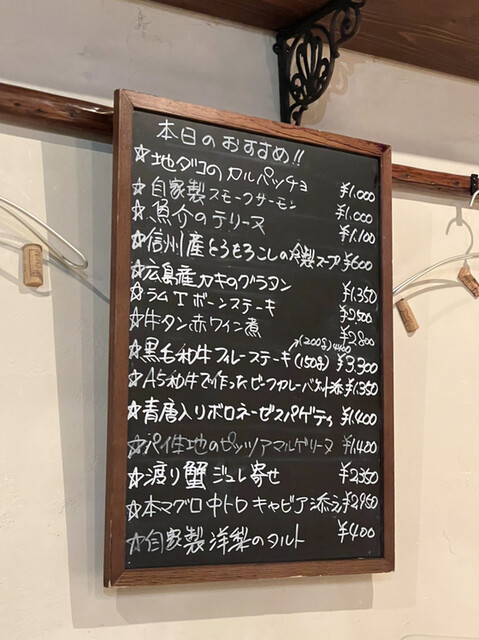 本日のおすすめ!!
☆地ダコのカルパッチョ ¥1.000
☆自家製スモークサーモン ¥1.000
☆魚介のテリーヌ ¥1.100
☆信州産とうもろこしの冷製スープ ¥600
☆広島産カキのグラタン ¥1.350
☆ラムTボーンステーキ ¥2.500
☆牛タン赤ワイン煮 ¥2.800
☆黒毛和牛フィレステーキ(150g) ¥3.300
(200g)
☆A5和牛で作ったビーフカレーバケット添 ¥1.350
☆青唐入りボロネーゼスパゲティ ¥1.400
☆パイ生地のピッツァマルゲリーヌ ¥1.420
☆渡り蟹ジュレ寄せ ¥2.350
☆本マグロ中トロキャビア添え ¥2950
☆自家製洋梨のタルト ¥400